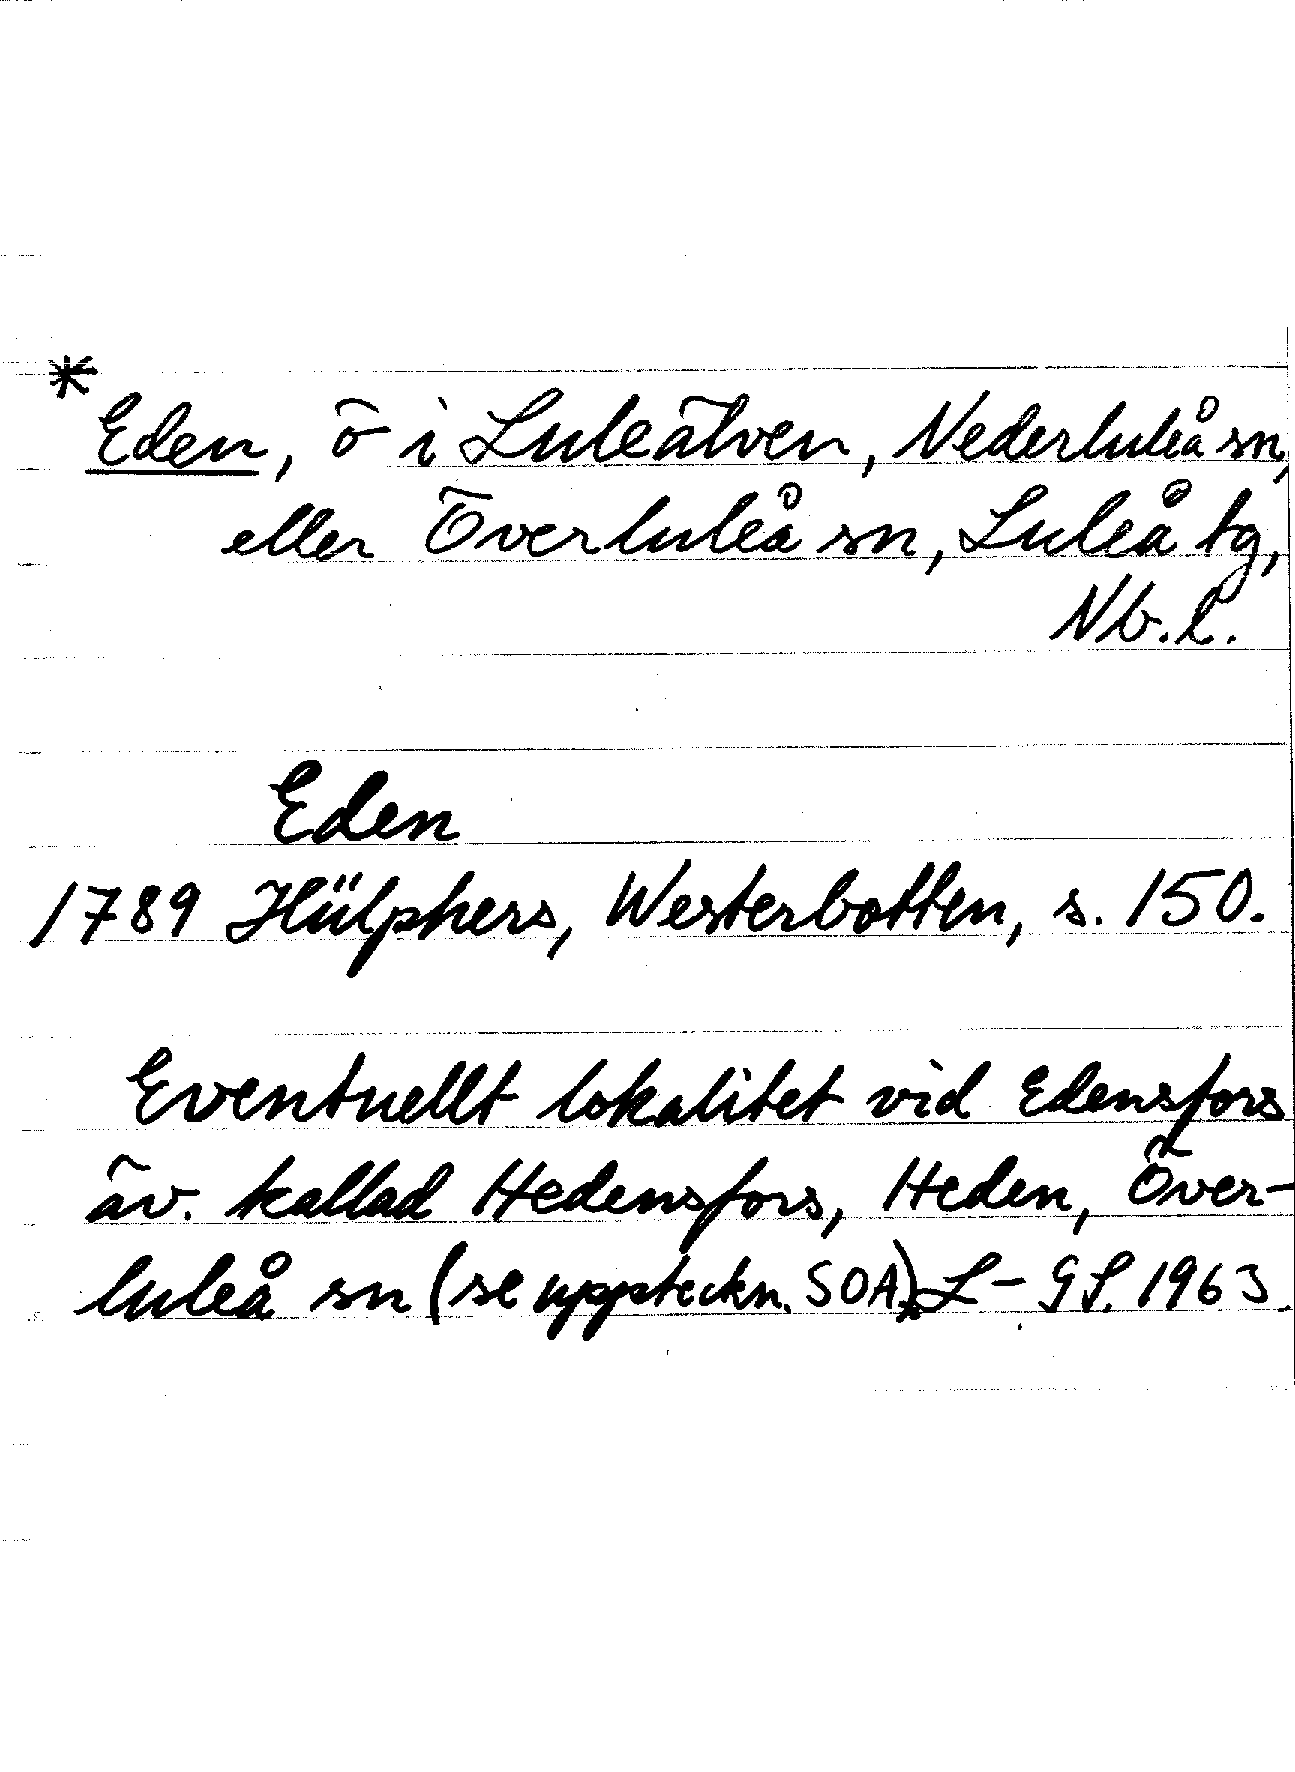 * Eden, ö i Luleälven, Nederluleå sn,
eller Överluleå sn, Luleå tg,
Nb.l.
Eden
1789 Hülphers, Westerbotten, s. 150.
Eventuellt lokalitet vid Edensfors
äv. kallad Hedensfors, Heden, Över-
luleå sn (se uppteckn. SOA). L- GS. 1963.